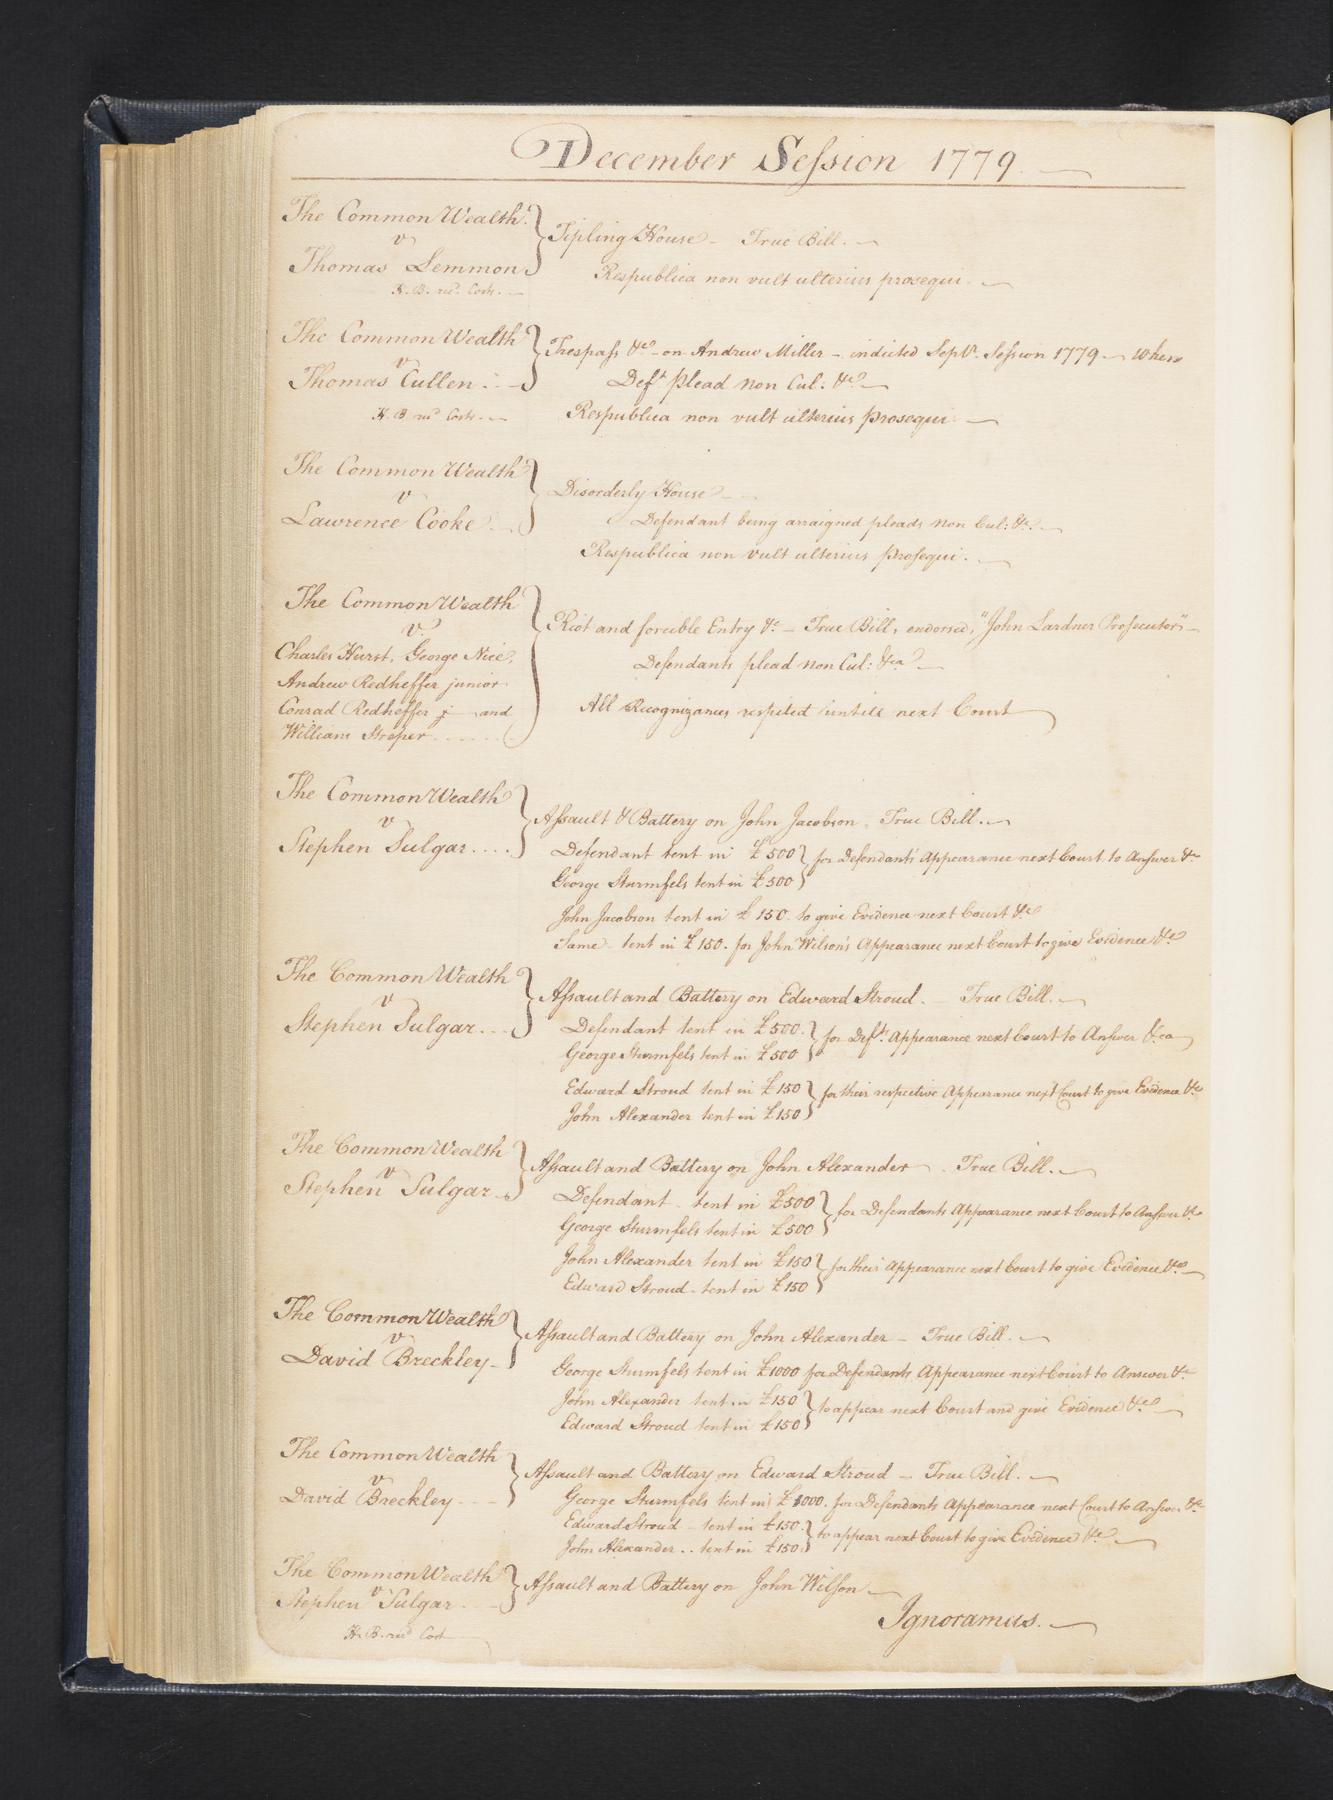 December Session 1779
The Common Wealth
v
Thomas Lemmon
H. B. recd. Costs.
Tipling House - True Bill.
Respublica non vult ulterius prosequi.
The Common Wealth
v
Thomas Cullen
H. B recd Costs.
Trespass &ca - on Andrew Miller - indicted Septr. Session 1779 - when
Deft. plead Non Cul: &ca
Respublica non vult ulterius prosequi
The Common Wealth
v
Lawrence Cooke
Disorderly House
Defendant being arraigned pleads Non Cul: &c.
Respublica non vult ulterius Prosequi.
The Common Wealth
v
Charles Hurst, George Nice,
Andrew Redheffer junior
Conrad Redheffer and
William Stroper
Riot and forcible Entry &c - True Bill, endorsed, "John Lardner Prosecutor" -
Defendants plead Non Cul: &ca
All Recognizances respited untill next Court
The Common Wealth
v
Stephen Sulgar
Assault & Battery on John Jacobson. True Bill.
Defendant tent in £500
George Sturmfels tent in £500
for Defendants Appearance next Court to Answer &c
John Jacobson tent in £150. to give Evidence next Court &c
Same - tent in £150. for John Wilson's Appearance next Court to give Evidence &c
The Common Wealth
v
Stephen Sulgar
Assault and Battery on Edward Stroud. - True Bill.
Defendant tent in £500.
George Sturmfels tent in £500
for Defts. Appearance next Court to Answer &ca
Edward Stroud tent in £150
John Alexander tent in £150
for their respective Appearance next Court to give Evidence &c
The Common Wealth
v
Stephen Sulgar
Assault and Battery on John Alexander. True Bill.
Defendant. tent in £500
George Sturmfels tent in £500
for Defendants Appearance next Court to Answer &c
John Alexander tent in £150
Edward Stroud - tent in £150
for their Appearance next Court to give Evidence &c
The Common Wealth
v
David Breckley
Assault and Battery on John Alexander - True Bill.
George Sturmfels tent in £1000 for Defendants Appearance next Court to Answer &c
John Alexander tent in £150
Edward Stroud tent in £150
to appear next Court and give Evidence &c
The Common Wealth
v
David Breckley
Assault and Battery on Edward Stroud - True Bill.
George Sturmfels tent in £1000. for Defendants Appearance next Court to Answer &c
Edward Stroud - tent in £150.
John Alexander .. tent in £150.
to appear next Court to give Evidence &c.
The Common Wealth
v
Stephen Sulgar
H. B. recd Cost
Assault and Battery on John Wilson
Ignoramus.